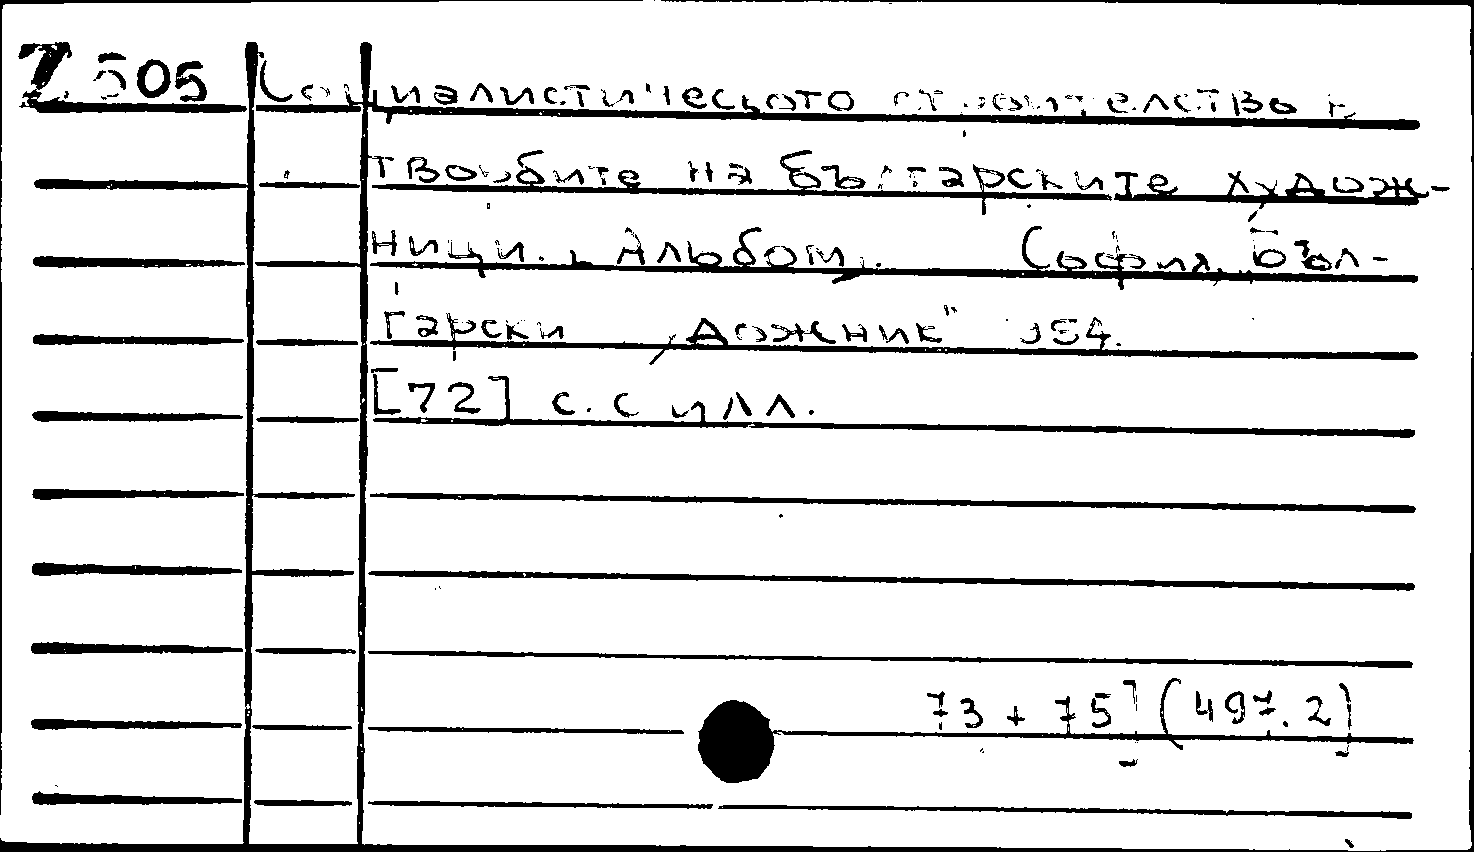 Z 505 Социалистическото строителство в
творбите на българските худож-
ници. Альбом. София, Бъл-
гарски художник" 954.
[72] с. с илл.
73 + 75] (497.2)